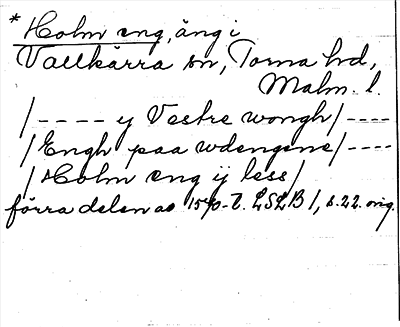 * Holm eng, äng i
Vallkärra sn, Torna hd,
Malm. l.
/---- y Vestre wongh/----
/Engh paa wdengine/----
/Holm eng ij less/
förra delen av 1570-t. LSLB 1, s. 22. orig.